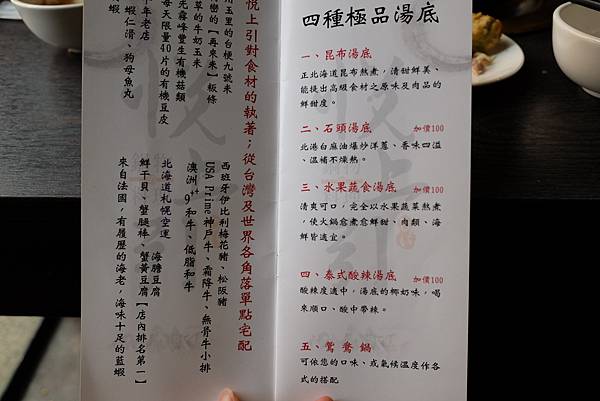 四種極品湯底
一、昆布湯底
正北海道昆布熬煮，清甜鮮美、
能提出高級食材之原味及肉品的
鮮甜度。
二、石頭湯底 加價100
北港白麻油爆炒洋蔥、香味四溢
、溫補不燥熱。
三、水果蔬食湯底 加價100
清爽可口，完全以水果蔬菜熬煮
，使火鍋愈煮愈鮮甜、肉類、海
鮮皆適宜。
四、泰式酸辣湯底 加價100
酸辣度適中，湯底的椰奶味，喝
來順口、酸中帶辣。
五、鴛鴦鍋
可依您的口味、或氣候溫度作各
式的搭配
悅上引對食材的執著；從台灣及世界各角落單點宅配
州玉里的台梗九號米
巒的【再來來】粄條
草的牛奶玉米
光霧峰豐生有機菇類
每天限量40片的有機豆皮
十年老店
蝦仁滑、狗母魚丸
西班牙伊比利梅花豬、松阪豬
USA Prime神戶牛、霜降牛、無骨牛小排
澳洲9+和牛、低脂和牛
北海道札幌空運 海膽豆腐
鮮干貝、蟹腿棒、蟹黃豆腐【店內排名第一】
來自法國，有履歷的海老，海味十足的藍蝦